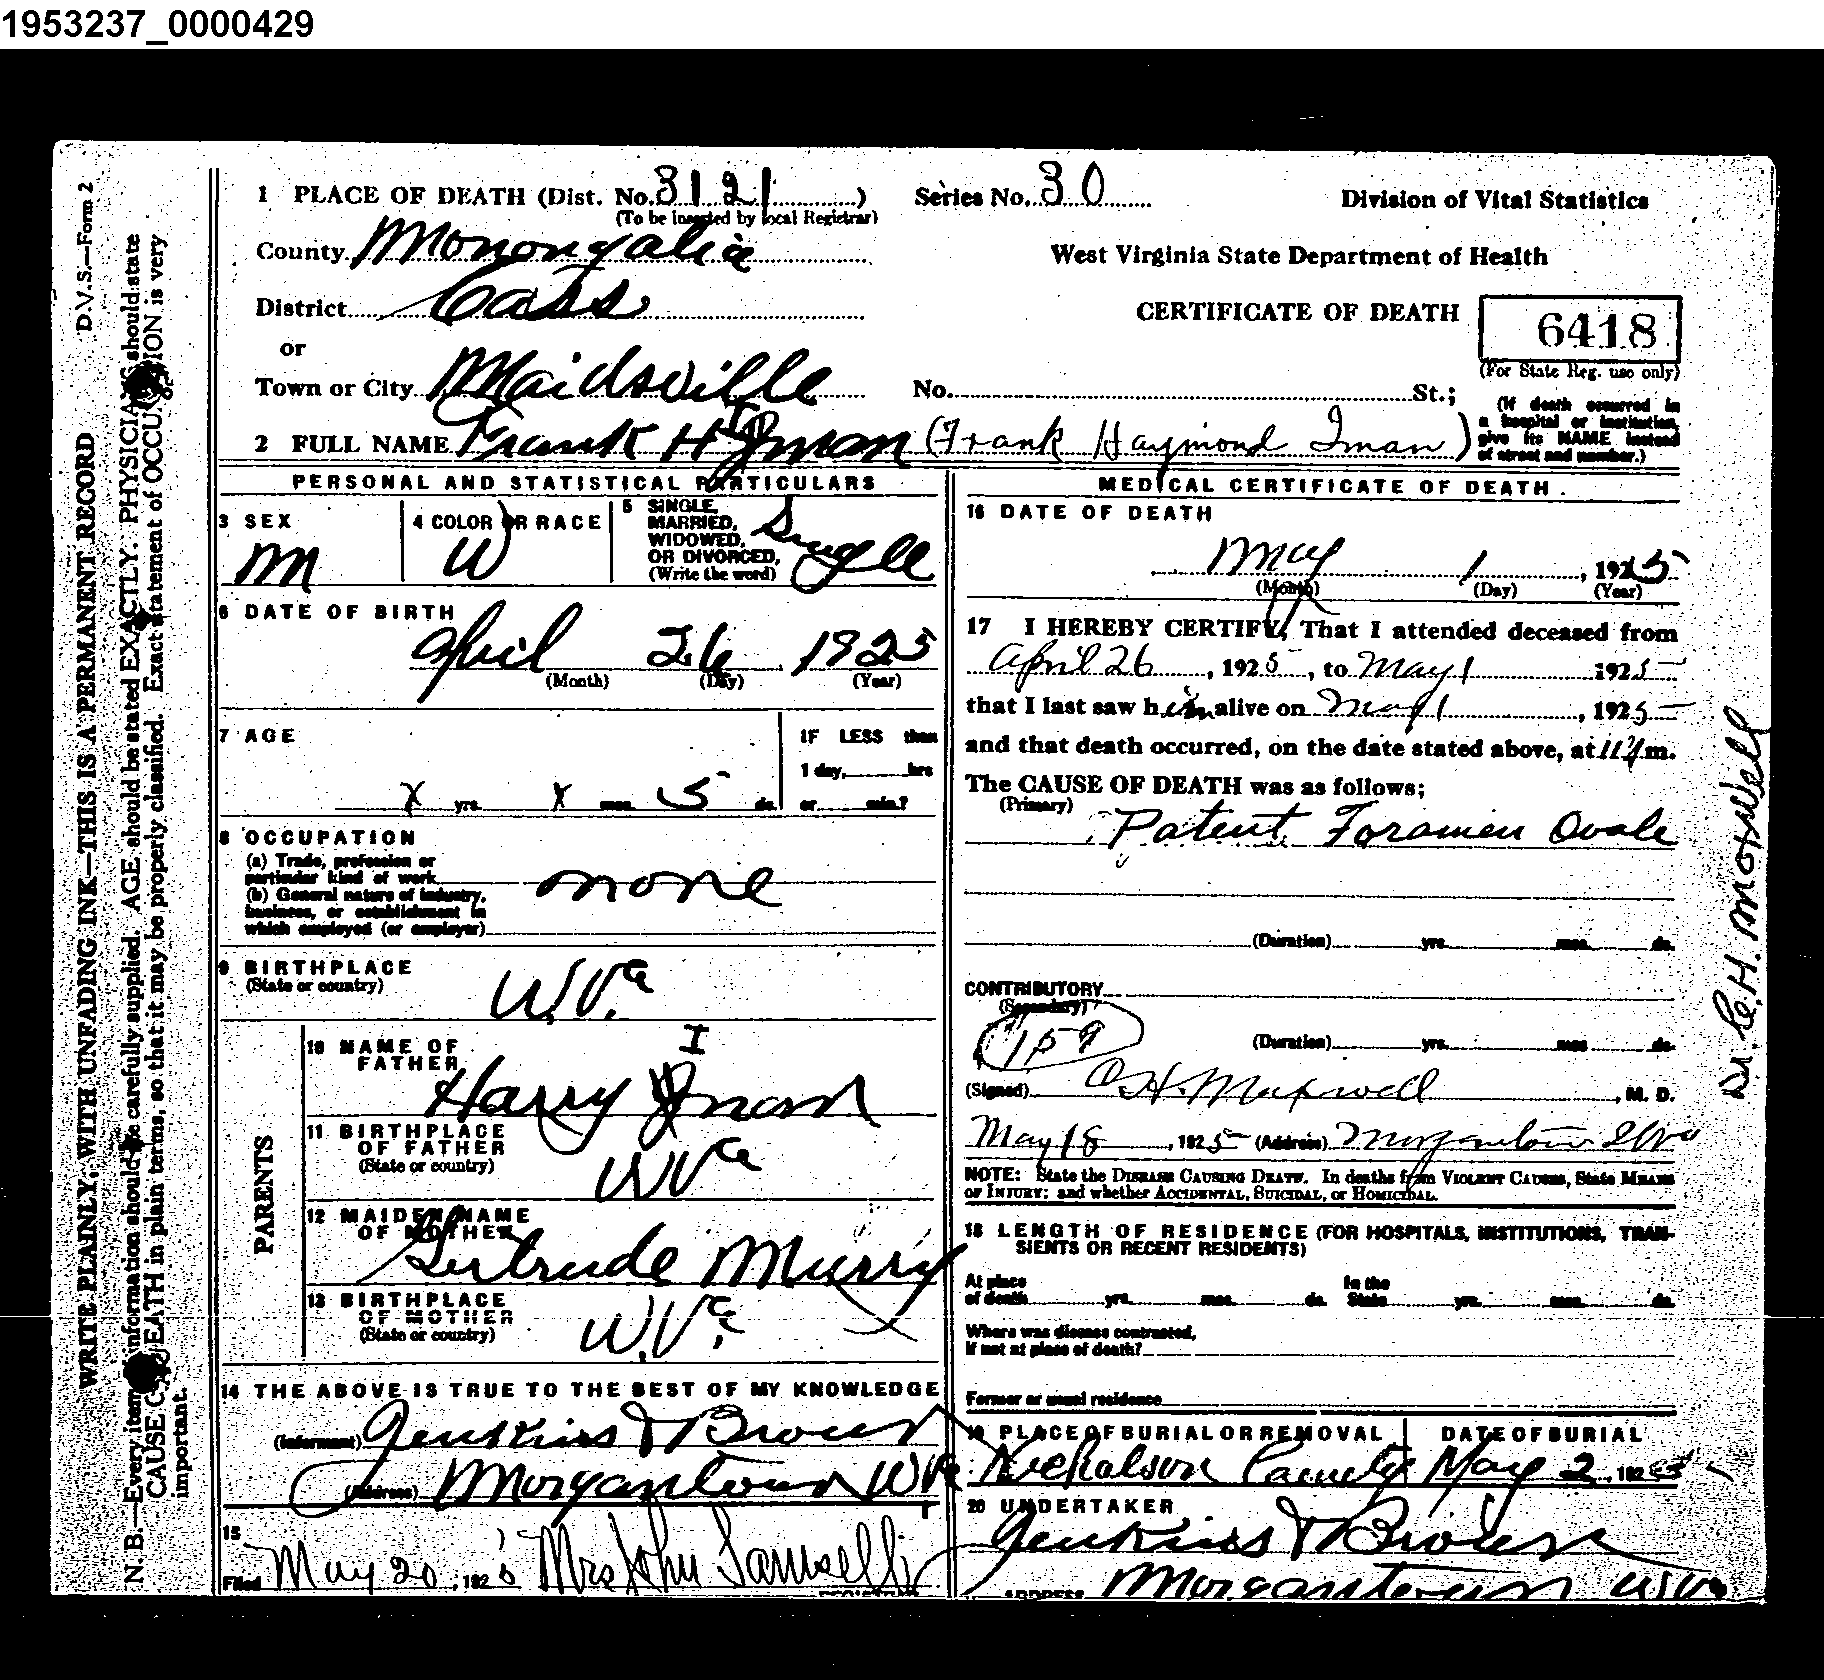 1953237_0000429
D.V.S.—Form 2
WRITE PLAINLY, WITH UNFADING INK—THIS IS A PERMANENT RECORD
N. B.—Every item information should be carefully supplied. AGE should be stated EXACTLY. PHYSICIANS should state
CAUSE OF DEATH in plain terms, so that it may be properly classified. Exact statement of OCCUPATION is very
important.
1 PLACE OF DEATH (Dist. No. 3121)
(To be inserted by local Registrar)
Series No. 30
Division of Vital Statistics
County Monongalia
West Virginia State Department of Health
District Cass
CERTIFICATE OF DEATH
6418
(For State Reg. use only)
or
Town or City Maidsville
No. St.;
(If death occurred in
a hospital or institution,
give its NAME instead
of street and number.)
I
2 FULL NAME Frank H Iman (Frank Haymond Iman)
PERSONAL AND STATISTICAL PARTICULARS
3 SEX
M
4 COLOR OR RACE
W
5 SINGLE,
MARRIED,
WIDOWED,
OR DIVORCED,
(Write the word)
Single
6 DATE OF BIRTH
April 26 1925
(Month) (Day) (Year)
7 AGE
IF LESS than
1 day, hrs
x yrs. x mos. 5 ds. or min.?
8 OCCUPATION
(a) Trade, profession or
particular kind of work
(b) General nature of industry,
business, or establishment in
which employed (or employer)
none
9 BIRTHPLACE
(State or country)
W.Va
PARENTS
10 NAME OF
FATHER
I
Harry Iman
11 BIRTHPLACE
OF FATHER
(State or country)
W Va
12 MAIDEN NAME
OF MOTHER
Gertrude Murry
13 BIRTHPLACE
OF MOTHER
(State or country)
W.Va.
14 THE ABOVE IS TRUE TO THE BEST OF MY KNOWLEDGE
(Informant) Jenkins & Brown
(Address) Morgantown W Va
15
Filed May 20, 192 Mrs John
MEDICAL CERTIFICATE OF DEATH.
16 DATE OF DEATH
May 1, 1925
(Month) (Day) (Year)
17 I HEREBY CERTIFY, That I attended deceased from
April 26, 1925, to May 1 1925
that I last saw him alive on May 1, 1925
and that death occurred, on the date stated above, at m.
The CAUSE OF DEATH was as follows;
(Primary)
Patent Foramen Ovale
(Duration) yrs. mos. ds.
CONTRIBUTORY
(Secondary)
159
(Duration) yrs. mos. ds.
(Signed) C H. Maxwell, M. D.
May 18, 1925 (Address) Morgantown W Va
NOTE: State the DISEASE CAUSING DEATH. In deaths from VIOLENT CAUSES, State MEANS
OF INJURY; and whether ACCIDENTAL, SUICIDAL, or HOMICIDAL.
18 LENGTH OF RESIDENCE (FOR HOSPITALS, INSTITUTIONS, TRAN-
SIENTS OR RECENT RESIDENTS)
At place
of death yrs. mos. ds.
In the
State yrs. mos. ds.
Where was disease contracted,
If not at place of death?
Former or usual residence
19 PLACE OF BURIAL OR REMOVAL
Nicholson
DATE OF BURIAL
May 2, 1925
20 UNDERTAKER
Jenkins & Brown
ADDRESS Morgantown W Va
Dr. C. H. Maxwell